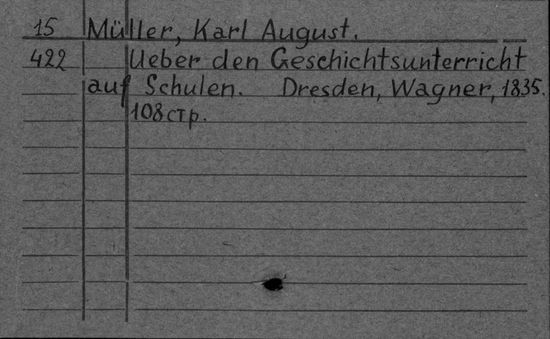 15 Müller, Karl August.
422 Ueber den Geschichtsunterricht
auf Schulen. Dresden, Wagner, 1835.
108 стр.